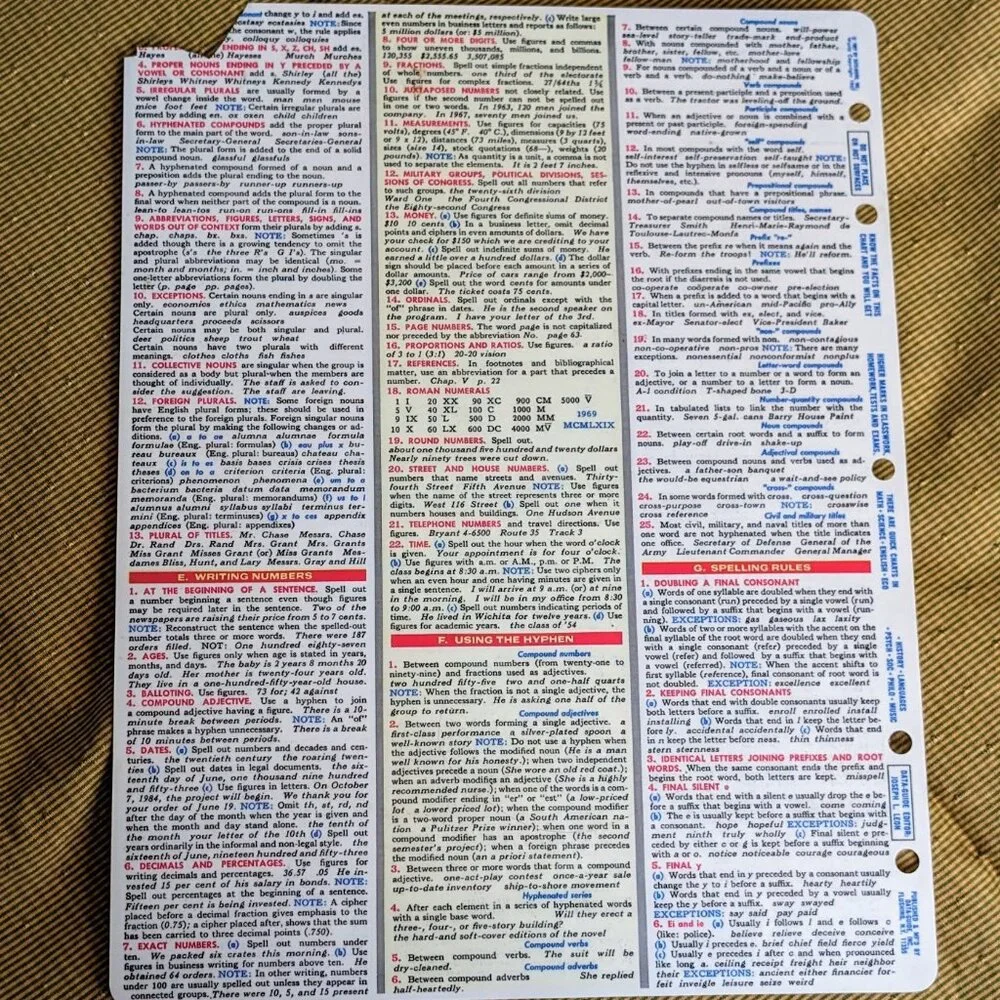 change y to i and add es.
ecstasy ecstasies NOTE: Since
he consonant w, the rule applies
colloquy colloquies
ENDING IN S, X, Z, CH, SH add es.
Hayes (all the) Hayeses Murch Murches
4. PROPER NOUNS ENDING IN Y PRECEDED BY A
VOWEL OR CONSONANT add s. Shirley (all the)
Shirleys Whitney Whitneys Kennedy Kennedys
5. IRREGULAR PLURALS are usually formed by a
vowel change inside the word. man men mouse
mice foot feet NOTE: Certain irregular plurals are
formed by adding en. ox oxen child children
6. HYPHENATED COMPOUNDS add the proper plural
form to the main part of the word. son-in-law sons-
in-law Secretary-General Secretaries-General
NOTE: The plural form is added to the end of a solid
compound noun. glassful glassfuls
7. A hyphenated compound formed of a noun and a
preposition adds the plural ending to the noun.
passer-by passers-by runner-up runners-up
8. A hyphenated compound adds the plural form to the
final word when neither part of the compound is a noun.
lean-to lean-tos run-on run-ons fill-in fill-ins
9. ABBREVIATIONS, FIGURES, LETTERS, SIGNS, AND
WORDS OUT OF CONTEXT form their plurals by adding s.
chap. chaps. bx. bxs. NOTE: Sometimes 's is
added though there is a growing tendency to omit the
apostrophe (s's the three R's G I's). The singular
and plural abbreviations may be identical (mo. =
month and months; in. = inch and inches). Some
one-letter abbreviations form the plural by doubling the
letter (p. page pp. pages).
10. EXCEPTIONS. Certain nouns ending in s are singular
only. economics ethics mathematics news
Certain nouns are plural only. auspices goods
headquarters proceeds scissors
Certain nouns may be both singular and plural.
deer politics sheep trout wheat
Certain nouns have two plurals with different
meanings. clothes cloths fish fishes
11. COLLECTIVE NOUNS are singular when the group is
considered as a body but plural when the members are
thought of individually. The staff is asked to con-
sider the suggestion. The staff are leaving.
12. FOREIGN PLURALS. NOTE: Some foreign nouns
have English plural forms; these should be used in
preference to the foreign plurals. Foreign singular nouns
form the plural by making the following changes or ad-
ditions. (a) a to ae alumna alumnae formula
formulae (Eng. plural: formulas) (b) eau plus x bu-
reau bureaux (Eng. plural: bureaus) chateau cha-
teaux (c) is to es basis bases crisis crises thesis
theses (d) on to a criterion criteria (Eng. plural:
criterions) phenomenon phenomena (e) um to a
bacterium bacteria datum data memorandum
memoranda (Eng. plural: memorandums) (f) us to i
alumnus alumni syllabus syllabi terminus ter-
mini (Eng. plural: terminuses) (g) x to ces appendix
appendices (Eng. plural: appendixes)
13. PLURAL OF TITLES. Mr. Chase Messrs. Chase
Dr. Rand Drs. Rand Mrs. Grant Mrs. Grants
Miss Grant Misses Grant (or) Miss Grants Mes-
dames Bliss, Hunt, and Lary Messrs. Gray and Hill
E. WRITING NUMBERS
1. AT THE BEGINNING OF A SENTENCE. Spell out
a number beginning a sentence even though figures
may be required later in the sentence. Two of the
newspapers are raising their price from 5 to 7 cents.
NOTE: Reconstruct the sentence when the spelled-out
number totals three or more words. There were 187
orders filled. NOT: One hundred eighty-seven
2. AGES. Use figures only when age is stated in years,
months, and days. The baby is 2 years 8 months 20
days old. Her mother is twenty-four years old.
They live in a one-hundred-fifty-year-old house.
3. BALLOTING. Use figures. 73 for; 42 against
4. COMPOUND ADJECTIVE. Use a hyphen to join
a compound adjective having a figure. There is a 10-
minute break between periods. NOTE: An "of"
phrase makes a hyphen unnecessary. There is a break
of 10 minutes between periods.
5. DATES. (a) Spell out numbers and decades and cen-
turies. the twentieth century the roaring twen-
ties (b) Spell out dates in legal documents. the six-
teenth day of June, one thousand nine hundred
and fifty-three (c) Use figures in letters. On October
7, 1984, the project will begin. We thank you for
your order of June 19. NOTE: Omit th, st, rd, nd
after the day of the month when the year is given and
when the month and day stand alone. the tenth of
the month your letter of the 10th (d) Spell out
years ordinarily in the informal and non-legal style. the
sixteenth of June, nineteen hundred and fifty-three
6. DECIMALS AND PERCENTAGES. Use figures for
writing decimals and percentages. 36.57 .05 He in-
vested 15 per cent of his salary in bonds. NOTE:
Spell out percentages at the beginning of a sentence.
Fifteen per cent is being invested. NOTE: A cipher
placed before a decimal fraction gives emphasis to the
fraction (0.75); a cipher placed after, shows that the sum
has been carried to three decimal points (.750).
7. EXACT NUMBERS. (a) Spell out numbers under
ten. We packed six crates this morning. (b) Use
figures in business writing for numbers above ten. He
obtained 64 orders. NOTE: In other writing, numbers
under 100 are usually spelled out unless they appear in
connected groups. There were 10, 5, and 15 present
at each of the meetings, respectively. (c) Write large
even numbers in business letters and reports as follows:
5 million dollars (or: $5 million).
8. FOUR OR MORE DIGITS. Use figures and commas
to show uneven thousands, millions, and billions.
120,355 $2,555.65 3,507,085
9. FRACTIONS. Spell out simple fractions independent
of whole numbers. one third of the electorate
Use figures for complex fractions. 27/64ths 1¾
10. JUXTAPOSED NUMBERS not closely related. Use
figures if the second number can not be spelled out
in one or two words. In 1963, 120 men joined the
company. In 1967, seventy men joined us.
11. MEASUREMENTS. Use figures for capacities (75
volts), degrees (45° F. 40° C.), dimensions (9 by 12 feet
or 9 x 12), distances (73 miles), measures (3 quarts),
sizes (size 14), stock quotations (68—), weights (20
pounds). NOTE: As quantity is a unit, a comma is not
used to separate the elements. It is 2 feet 7 inches.
12. MILITARY GROUPS, POLITICAL DIVISIONS, SES-
SIONS OF CONGRESS. Spell out all numbers that refer
to such groups. the twenty-sixth division
Ward One the Fourth Congressional District
the Eighty-second Congress
13. MONEY. (a) Use figures for definite sums of money.
$10 10 cents (b) In a business letter, omit decimal
points and ciphers in even amounts of dollars. We have
your check for $150 which we are crediting to your
account. (c) Spell out indefinite sums of money. He
earned a little over a hundred dollars. (d) The dollar
sign should be placed before each amount in a series of
dollar amounts. Price of cars range from $2,000—
$3,200 (e) Spell out the word cents for amounts under
one dollar. The ticket costs 75 cents.
14. ORDINALS. Spell out ordinals except with the
"of" phrase in dates. He is the second speaker on
the program. I have your letter of the 3rd.
15. PAGE NUMBERS. The word page is not capitalized
nor preceded by the abbreviation No. page 63.
16. PROPORTIONS AND RATIOS. Use figures. a ratio
of 3 to 1 (3:1) 20-20 vision
17. REFERENCES. In footnotes and bibliographical
matter, use an abbreviation for a part that precedes a
number. Chap. V p. 22
18. ROMAN NUMERALS
1 I 20 XX 90 XC 900 CM 5000 V̅
5 V 40 XL 100 C 1000 M
9 IX 50 L 500 D 2000 MM 1969
10 X 60 LX 600 DC 4000 MV̅ MCMLXIX
19. ROUND NUMBERS. Spell out.
about one thousand five hundred and twenty dollars
Nearly ninety trees were cut down.
20. STREET AND HOUSE NUMBERS. (a) Spell out
numbers that name streets and avenues. Thirty-
fourth Street Fifth Avenue NOTE: Use figures
when the name of the street represents three or more
digits. West 116 Street (b) Spell out one when it
numbers houses and buildings. One Hudson Avenue
21. TELEPHONE NUMBERS and travel directions. Use
figures. Bryant 4-6500 Route 35 Track 3
22. TIME. (a) Spell out the hour when the word o'clock
is given. Your appointment is for four o'clock.
(b) Use figures with a.m. or A.M., p.m. or P.M. The
class begins at 8:30 a.m. NOTE: Use two ciphers only
when an even hour and one having minutes are given in
a single sentence. I will arrive at 9 a.m. (or) at nine
in the morning. I will be in my office from 8:30
to 9:00 a.m. (c) Spell out numbers indicating periods of
time. He lived in Wichita for twelve years. (d) Use
figures for academic years. the class of '54
F. USING THE HYPHEN
Compound numbers
1. Between compound numbers (from twenty-one to
ninety-nine) and fractions used as adjectives.
two hundred fifty-five two and one-half quarts
NOTE: When the fraction is not a single adjective, the
hyphen is unnecessary. He is asking one half of the
group to return.
Compound adjectives
2. Between two words forming a single adjective. a
first-class performance a silver-plated spoon a
well-known story NOTE: Do not use a hyphen when
the adjective follows the modified noun (He is a man
well known for his honesty.); when two independent
adjectives precede a noun (She wore an old red coat.);
when an adverb modifies an adjective (She is a highly
recommended nurse.); when one of the words is a com-
pound modifier ending in "er" or "est" (a low-priced
lot a lower priced lot); when the compound modifier
is a two-word proper noun (a South American na-
tion a Pulitzer Prize winner); when one word in a
compound modifier has an apostrophe (the second
semester's project); when a foreign phrase precedes
the modified noun (an a priori statement).
3. Between three or more words that form a compound
adjective. one-act-play contest once-a-year sale
up-to-date inventory ship-to-shore movement
Hyphenated series
4. After each element in a series of hyphenated words
with a single base word. Will they erect a
three-, four-, or five-story building?
the hard-and soft-cover editions of the novel
Compound verbs
5. Between compound verbs. The suit will be
dry-cleaned.
Compound adverbs
6. Between compound adverbs She replied
half-heartedly.
Compound nouns
7. Between certain compound nouns. will-power
sea-level story-teller trade-mark end-product
8. With nouns compounded with mother, father,
brother, sister, fellow, etc. mother-love
fellow-man NOTE: motherhood and fellowship
9. For nouns compounded of a verb and a noun or of a
verb and a verb. do-nothing make-believe
Verb compounds
10. Between a present participle and a preposition used
as a verb. The tractor was leveling-off the ground.
Participial compounds
11. When an adjective or noun is combined with a
present or past participle. foreign-spending
word-ending native-grown
"self" compounds
12. In most compounds with the word self.
self-interest self-preservation self-taught NOTE:
Do not use the hyphen in selfless or selfsame or in the
reflexive and intensive pronouns (myself, himself,
themselves, etc.).
Prepositional compounds
13. In compounds that have a prepositional phrase
mother-of-pearl out-of-town visitors
Compound titles, names
14. To separate compound names or titles. Secretary-
Treasurer Smith Henri-Marie-Raymond de
Toulouse-Lautrec-Monfa
Prefix "re-"
15. Between the prefix re when it means again and the
verb. Re-form the troops! NOTE: He'll reform.
Prefixes
16. With prefixes ending in the same vowel that begins
the root if the diaeresis is not used.
co-operate coöperate co-owner pre-election
17. When a prefix is added to a word that begins with a
capital letter. un-American mid-Pacific pro-Ally
18. In titles formed with ex, elect, and vice.
ex-Mayor Senator-elect Vice-President Baker
"non-" compounds
19. In many words formed with non. non-contagious
non-co-operative non-pros NOTE: There are many
exceptions. nonessential nonconformist nonplus
Letter-word compounds
20. To join a letter to a number or a word to form an
adjective, or a number to a letter to form a noun.
A-1 condition T-shaped bone 3-D
Number-quantity compounds
21. In tabulated lists to link the number with the
quantity. Seven 5-gal. cans Barry House Paint
Noun compounds
22. Between certain root words and a suffix to form
nouns. play-off drive-in shake-up
Adjectival compounds
23. Between compound nouns and verbs used as ad-
jectives. a father-son banquet
the would-be equestrian a wait-and-see policy
"cross-" compounds
24. In some words formed with cross. cross-question
cross-purpose cross-town NOTE: crosswise
cross reference
Civil and military titles
25. Most civil, military, and naval titles of more than
one word are not hyphenated when the title indicates
one office. Secretary of Defense General of the
Army Lieutenant Commander General Manager
G. SPELLING RULES
1. DOUBLING A FINAL CONSONANT
(a) Words of one syllable are doubled when they end with
a single consonant (run) preceded by a single vowel (run)
and followed by a suffix that begins with a vowel (run-
ning). EXCEPTIONS: gas gaseous lax laxity
(b) Words of two or more syllables with the accent on the
final syllable of the root are doubled when they end
with a single consonant (refer) preceded by a single
vowel (refer) and followed by a suffix that begins with
a vowel (referred). NOTE: When the accent shifts to
first syllable (reference), final consonant of root word is
not doubled. EXCEPTION: excellence excellent
2. KEEPING FINAL CONSONANTS
(a) Words that end with double consonants usually keep
both letters before a suffix. enroll enrolled install
installing (b) Words that end in l keep the letter be-
fore ly. accidental accidentally (c) Words that end
in n keep the letter before ness. thin thinness
stern sternness
3. IDENTICAL LETTERS JOINING PREFIXES AND ROOT
WORDS. When the same consonant ends the prefix and
begins the root word, both letters are kept. misspell
4. FINAL SILENT e
(a) Words that end with a silent e usually drop the e be-
fore a suffix that begins with a vowel. come coming
(b) The e is usually kept before a suffix that begins with
a consonant. hope hopeful EXCEPTIONS: judg-
ment ninth truly wholly (c) Final silent e pre-
ceded by either c or g is kept before a suffix beginning
with a or o. notice noticeable courage courageous
5. FINAL y
(a) Words that end in y preceded by a consonant usually
change the y to i before a suffix. hearty heartily
(b) Words that end in y preceded by a vowel usually
keep the y before a suffix. sway swayed
EXCEPTIONS: say said pay paid
6. Ei and ie (a) Usually i follows l and e follows c
(like: police). believe relieve deceive conceive
(b) Usually i precedes e. brief chief field fierce yield
(c) Usually e precedes i after c and when pronounced
like long a. ceiling receipt freight heir neighbor
their EXCEPTIONS: ancient either financier for-
feit inveigle leisure seize weird
DO NOT PLACE
ON HOT SURFACES
KNOW THE FACTS ON THIS
CHART AND YOU WILL GET
HIGHER MARKS IN CLASSWORK,
HOMEWORK, TESTS AND EXAMS.
THERE ARE QUICK CHARTS IN
MATH • SCIENCE • ENGLISH • ECO
• HISTORY • LANGUAGES
• PSYCH • SOC • PHILO • MUSIC
DATA-GUIDE EDITOR:
JOSEPH J. LEON